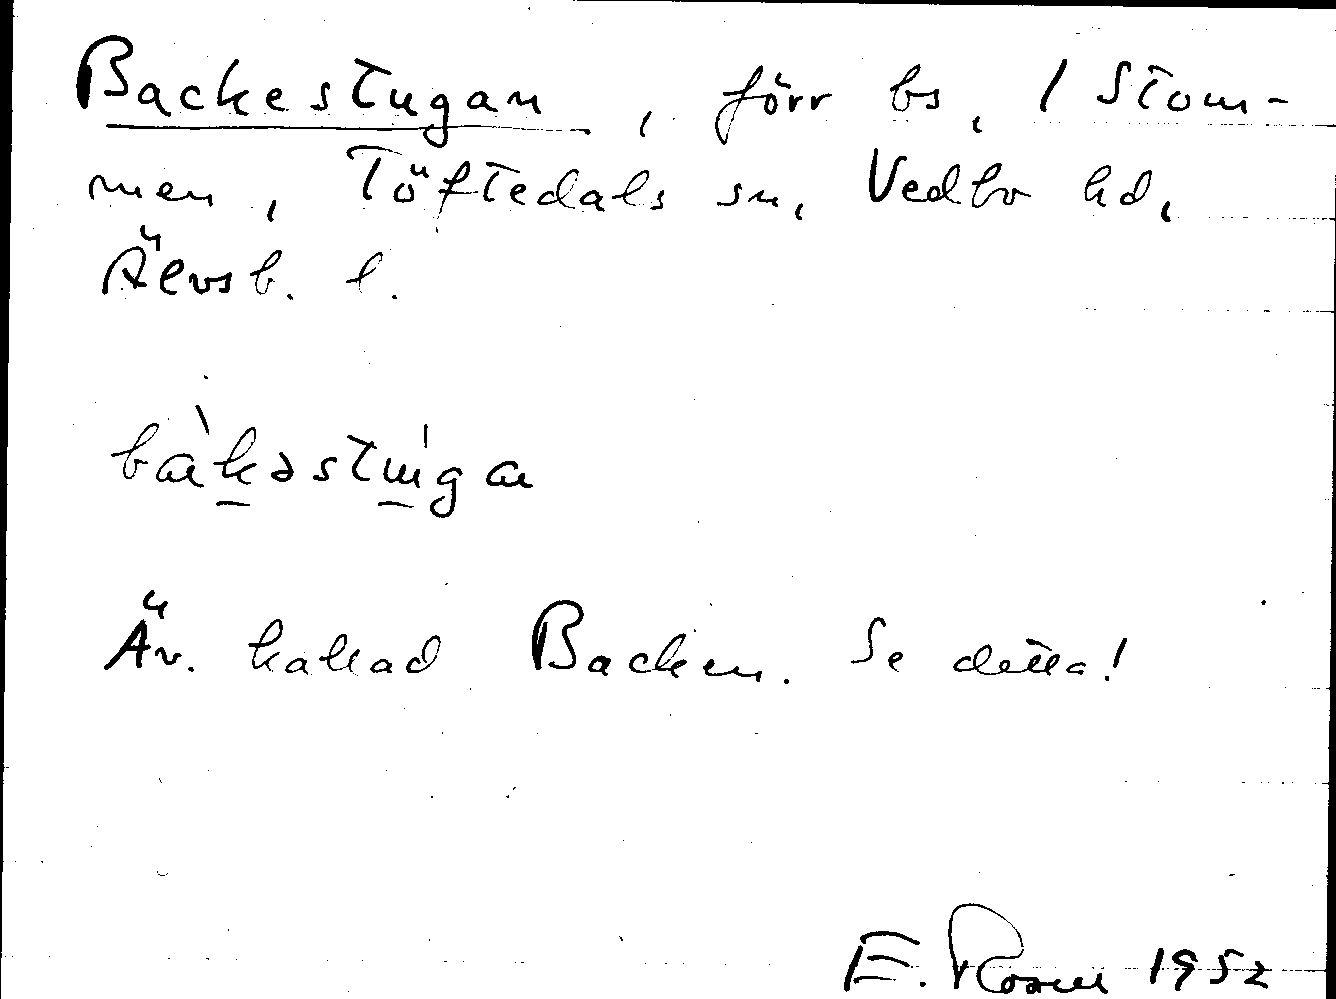 Backestugan, förr bs, 1 Stom-
men, Töftedals sn, Vedbo hd,
Älvsb. l.
bàkəstúga
Äv. kallad Backen. Se detta!
E. Rosell 1952